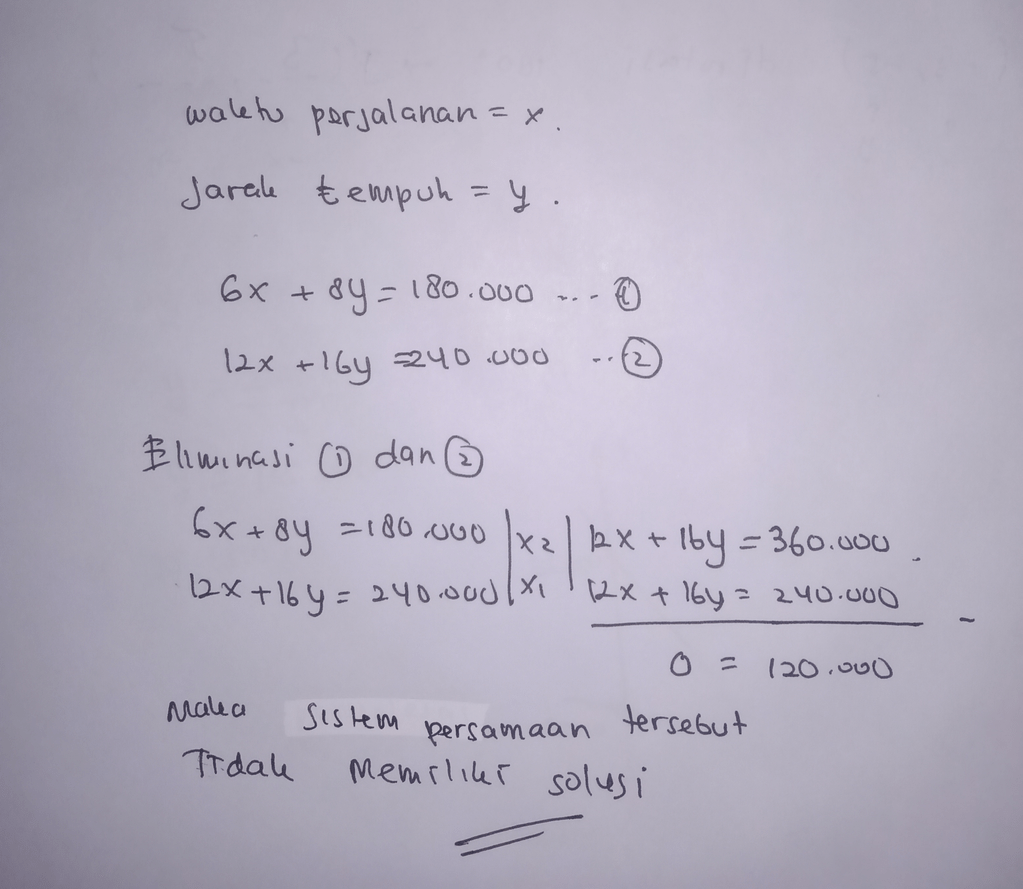 waktu perjalanan = x.
Jarak tempuh = y.
6x + 8y = 180.000 ... ①
12x + 16y = 240.000 .. ②
Eliminasi ① dan ②
6x + 8y = 180.000 | x2 | 12x + 16y = 360.000
12x + 16y = 240.000 | x1 | 12x + 16y = 240.000 -
0 = 120.000
Maka sistem persamaan tersebut
Tidak memiliki solusi